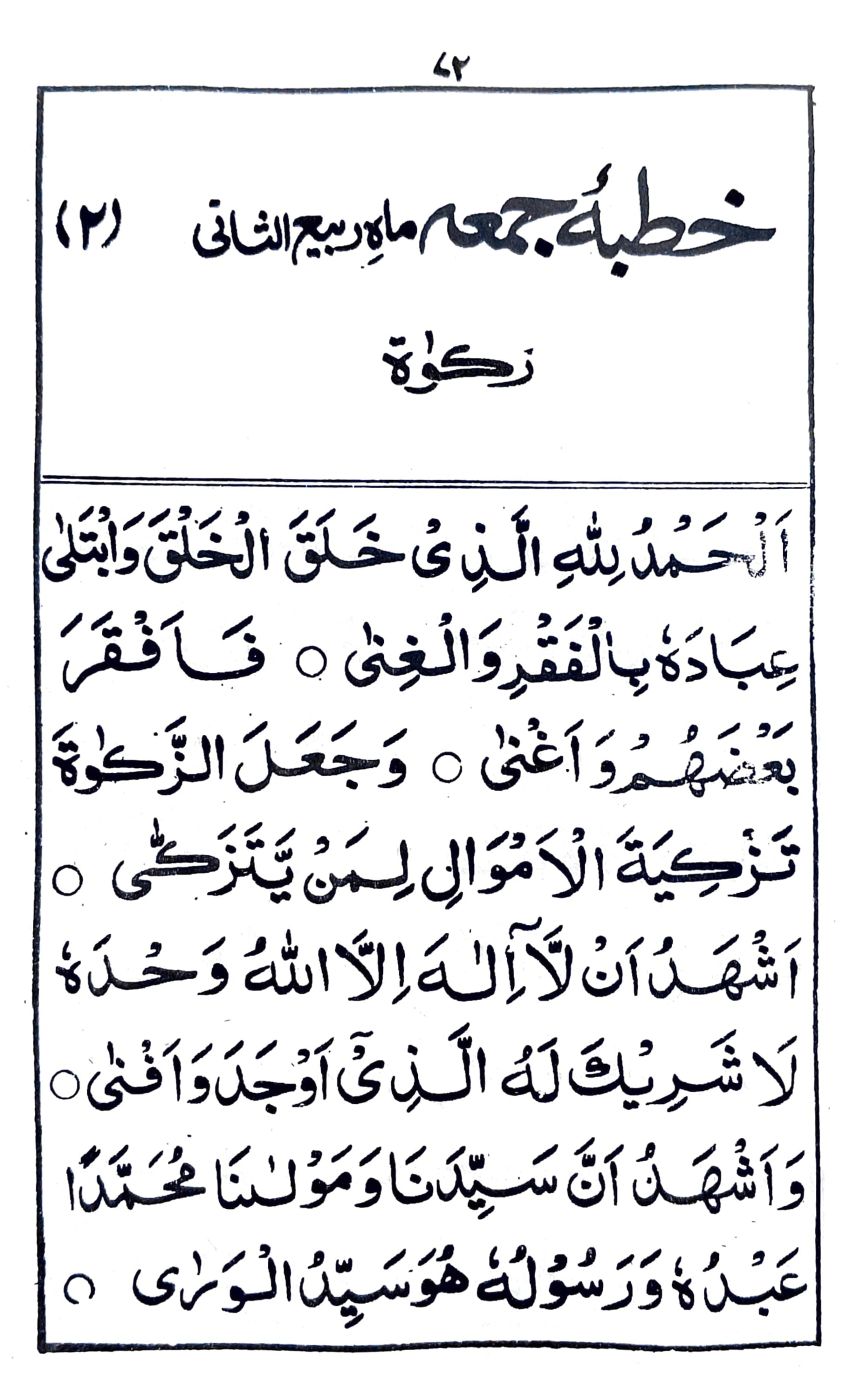 ۷۲
خطبۂ جمعہ ماہِ ربیع الثانی (۲)
زکوٰۃ
اَلْحَمْدُ لِلّٰهِ الَّذِیْ خَلَقَ الْخَلْقَ وَابْتَلٰی
عِبَادَهٗ بِالْفَقْرِ وَالْغِنٰی ○ فَاَفْقَرَ
بَعْضَهُمْ وَاَغْنٰی ○ وَجَعَلَ الزَّکٰوةَ
تَزْکِیَةَ الْاَمْوَالِ لِمَنْ یَّتَزَکّٰی ○
اَشْهَدُ اَنْ لَّاۤ اِلٰهَ اِلَّا اللّٰهُ وَحْدَهٗ
لَا شَرِیْكَ لَهُ الَّذِیْۤ اَوْجَدَ وَاَفْنٰی ○
وَاَشْهَدُ اَنَّ سَیِّدَنَا وَمَوْلٰىنَا مُحَمَّدًا
عَبْدُهٗ وَرَسُوْلُهٗ هُوَ سَیِّدُ الْوَرٰی ○